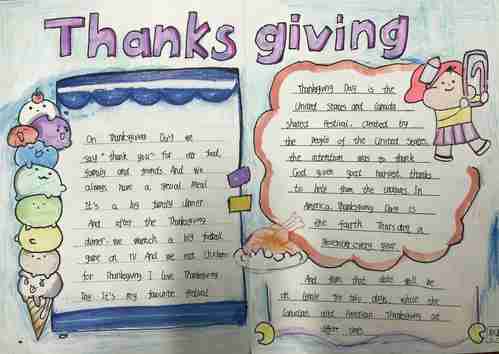 Thanks giving
On Thanksgiving Day we
say "thank you" for our food,
family and friends. And we
always have a special meal
It's a big family dinner
And after the Thanksgiving
dinner we watch a big football
game on TV. And we eat chicken
for Thanksgiving I love Thanksgiving
Day It's my favorite festival
Thanksgiving Day is the
United States and Canada
shared festival, created by
the people of the United States,
the intention was to thank
God given good harvest, thanks
to help from the Indians. In
America, Thanksgiving Day is
the fourth Thursday a
November every year.
And from that date will be
on leave for two days, while the
Canadian and American Thanksgiving at
other